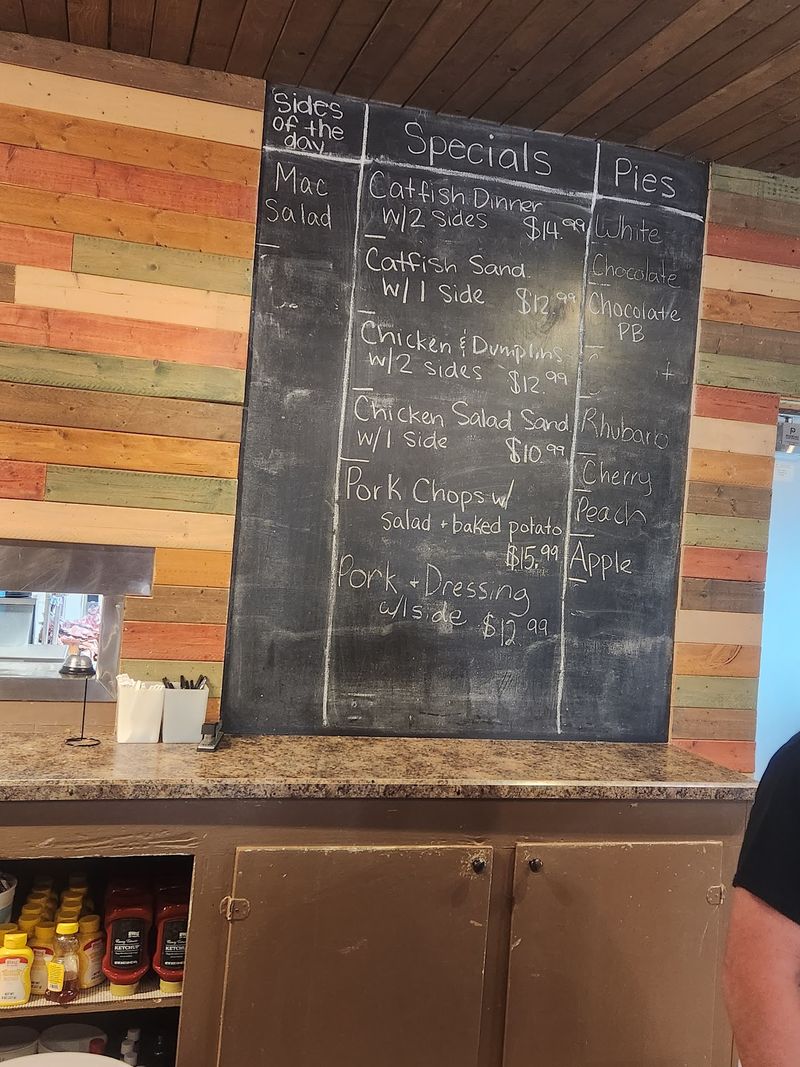 Sides
of the
day
Mac
Salad
Specials
Catfish Dinner
w/2 sides $14.99
Catfish Sand.
w/1 side $12.99
Chicken & Dumplins
w/2 sides $12.99
Chicken Salad Sand
w/1 side $10.99
Pork Chops w/
salad + baked potato
$15.99
Pork + Dressing
w/1 side $12.99
Pies
White
Chocolate
Chocolate
PB
Rhubarb
Cherry
Peach
Apple
KETCHUP
KETCHUP